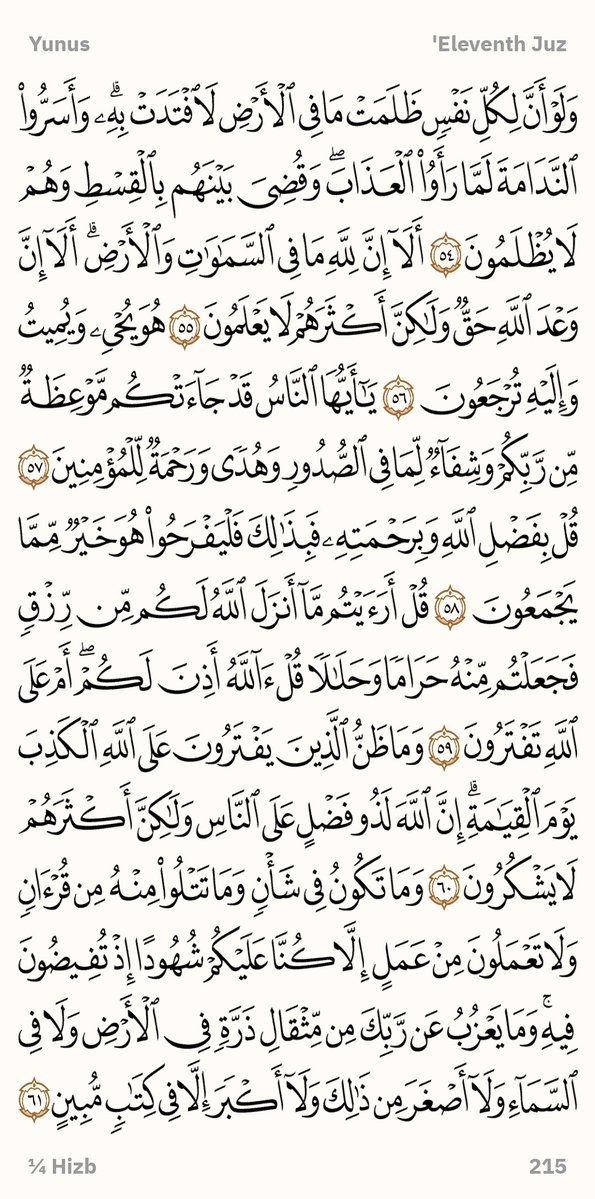 Yunus
'Eleventh Juz
وَلَوْ أَنَّ لِكُلِّ نَفْسٍ ظَلَمَتْ مَا فِي ٱلْأَرْضِ لَٱفْتَدَتْ بِهِۦۗ وَأَسَرُّوا۟
ٱلنَّدَامَةَ لَمَّا رَأَوُا۟ ٱلْعَذَابَۖ وَقُضِىَ بَيْنَهُم بِٱلْقِسْطِ وَهُمْ
لَا يُظْلَمُونَ ٥٤ أَلَآ إِنَّ لِلَّهِ مَا فِي ٱلسَّمَٰوَٰتِ وَٱلْأَرْضِۗ أَلَآ إِنَّ
وَعْدَ ٱللَّهِ حَقٌّ وَلَٰكِنَّ أَكْثَرَهُمْ لَا يَعْلَمُونَ ٥٥ هُوَ يُحْىِۦ وَيُمِيتُ
وَإِلَيْهِ تُرْجَعُونَ ٥٦ يَٰٓأَيُّهَا ٱلنَّاسُ قَدْ جَآءَتْكُم مَّوْعِظَةٌ
مِّن رَّبِّكُمْ وَشِفَآءٌ لِّمَا فِي ٱلصُّدُورِ وَهُدًى وَرَحْمَةٌ لِّلْمُؤْمِنِينَ ٥٧
قُلْ بِفَضْلِ ٱللَّهِ وَبِرَحْمَتِهِۦ فَبِذَٰلِكَ فَلْيَفْرَحُوا۟ هُوَ خَيْرٌ مِّمَّا
يَجْمَعُونَ ٥٨ قُلْ أَرَءَيْتُم مَّآ أَنزَلَ ٱللَّهُ لَكُم مِّن رِّزْقٍ
فَجَعَلْتُم مِّنْهُ حَرَامًا وَحَلَٰلًا قُلْ ءَآللَّهُ أَذِنَ لَكُمْۖ أَمْ عَلَى
ٱللَّهِ تَفْتَرُونَ ٥٩ وَمَا ظَنُّ ٱلَّذِينَ يَفْتَرُونَ عَلَى ٱللَّهِ ٱلْكَذِبَ
يَوْمَ ٱلْقِيَٰمَةِۗ إِنَّ ٱللَّهَ لَذُو فَضْلٍ عَلَى ٱلنَّاسِ وَلَٰكِنَّ أَكْثَرَهُمْ
لَا يَشْكُرُونَ ٦٠ وَمَا تَكُونُ فِي شَأْنٍ وَمَا تَتْلُوا۟ مِنْهُ مِن قُرْءَانٍ
وَلَا تَعْمَلُونَ مِنْ عَمَلٍ إِلَّا كُنَّا عَلَيْكُمْ شُهُودًا إِذْ تُفِيضُونَ
فِيهِۚ وَمَا يَعْزُبُ عَن رَّبِّكَ مِن مِّثْقَالِ ذَرَّةٍ فِي ٱلْأَرْضِ وَلَا فِي
ٱلسَّمَآءِ وَلَآ أَصْغَرَ مِن ذَٰلِكَ وَلَآ أَكْبَرَ إِلَّا فِي كِتَٰبٍ مُّبِينٍ ٦١
¼ Hizb
215